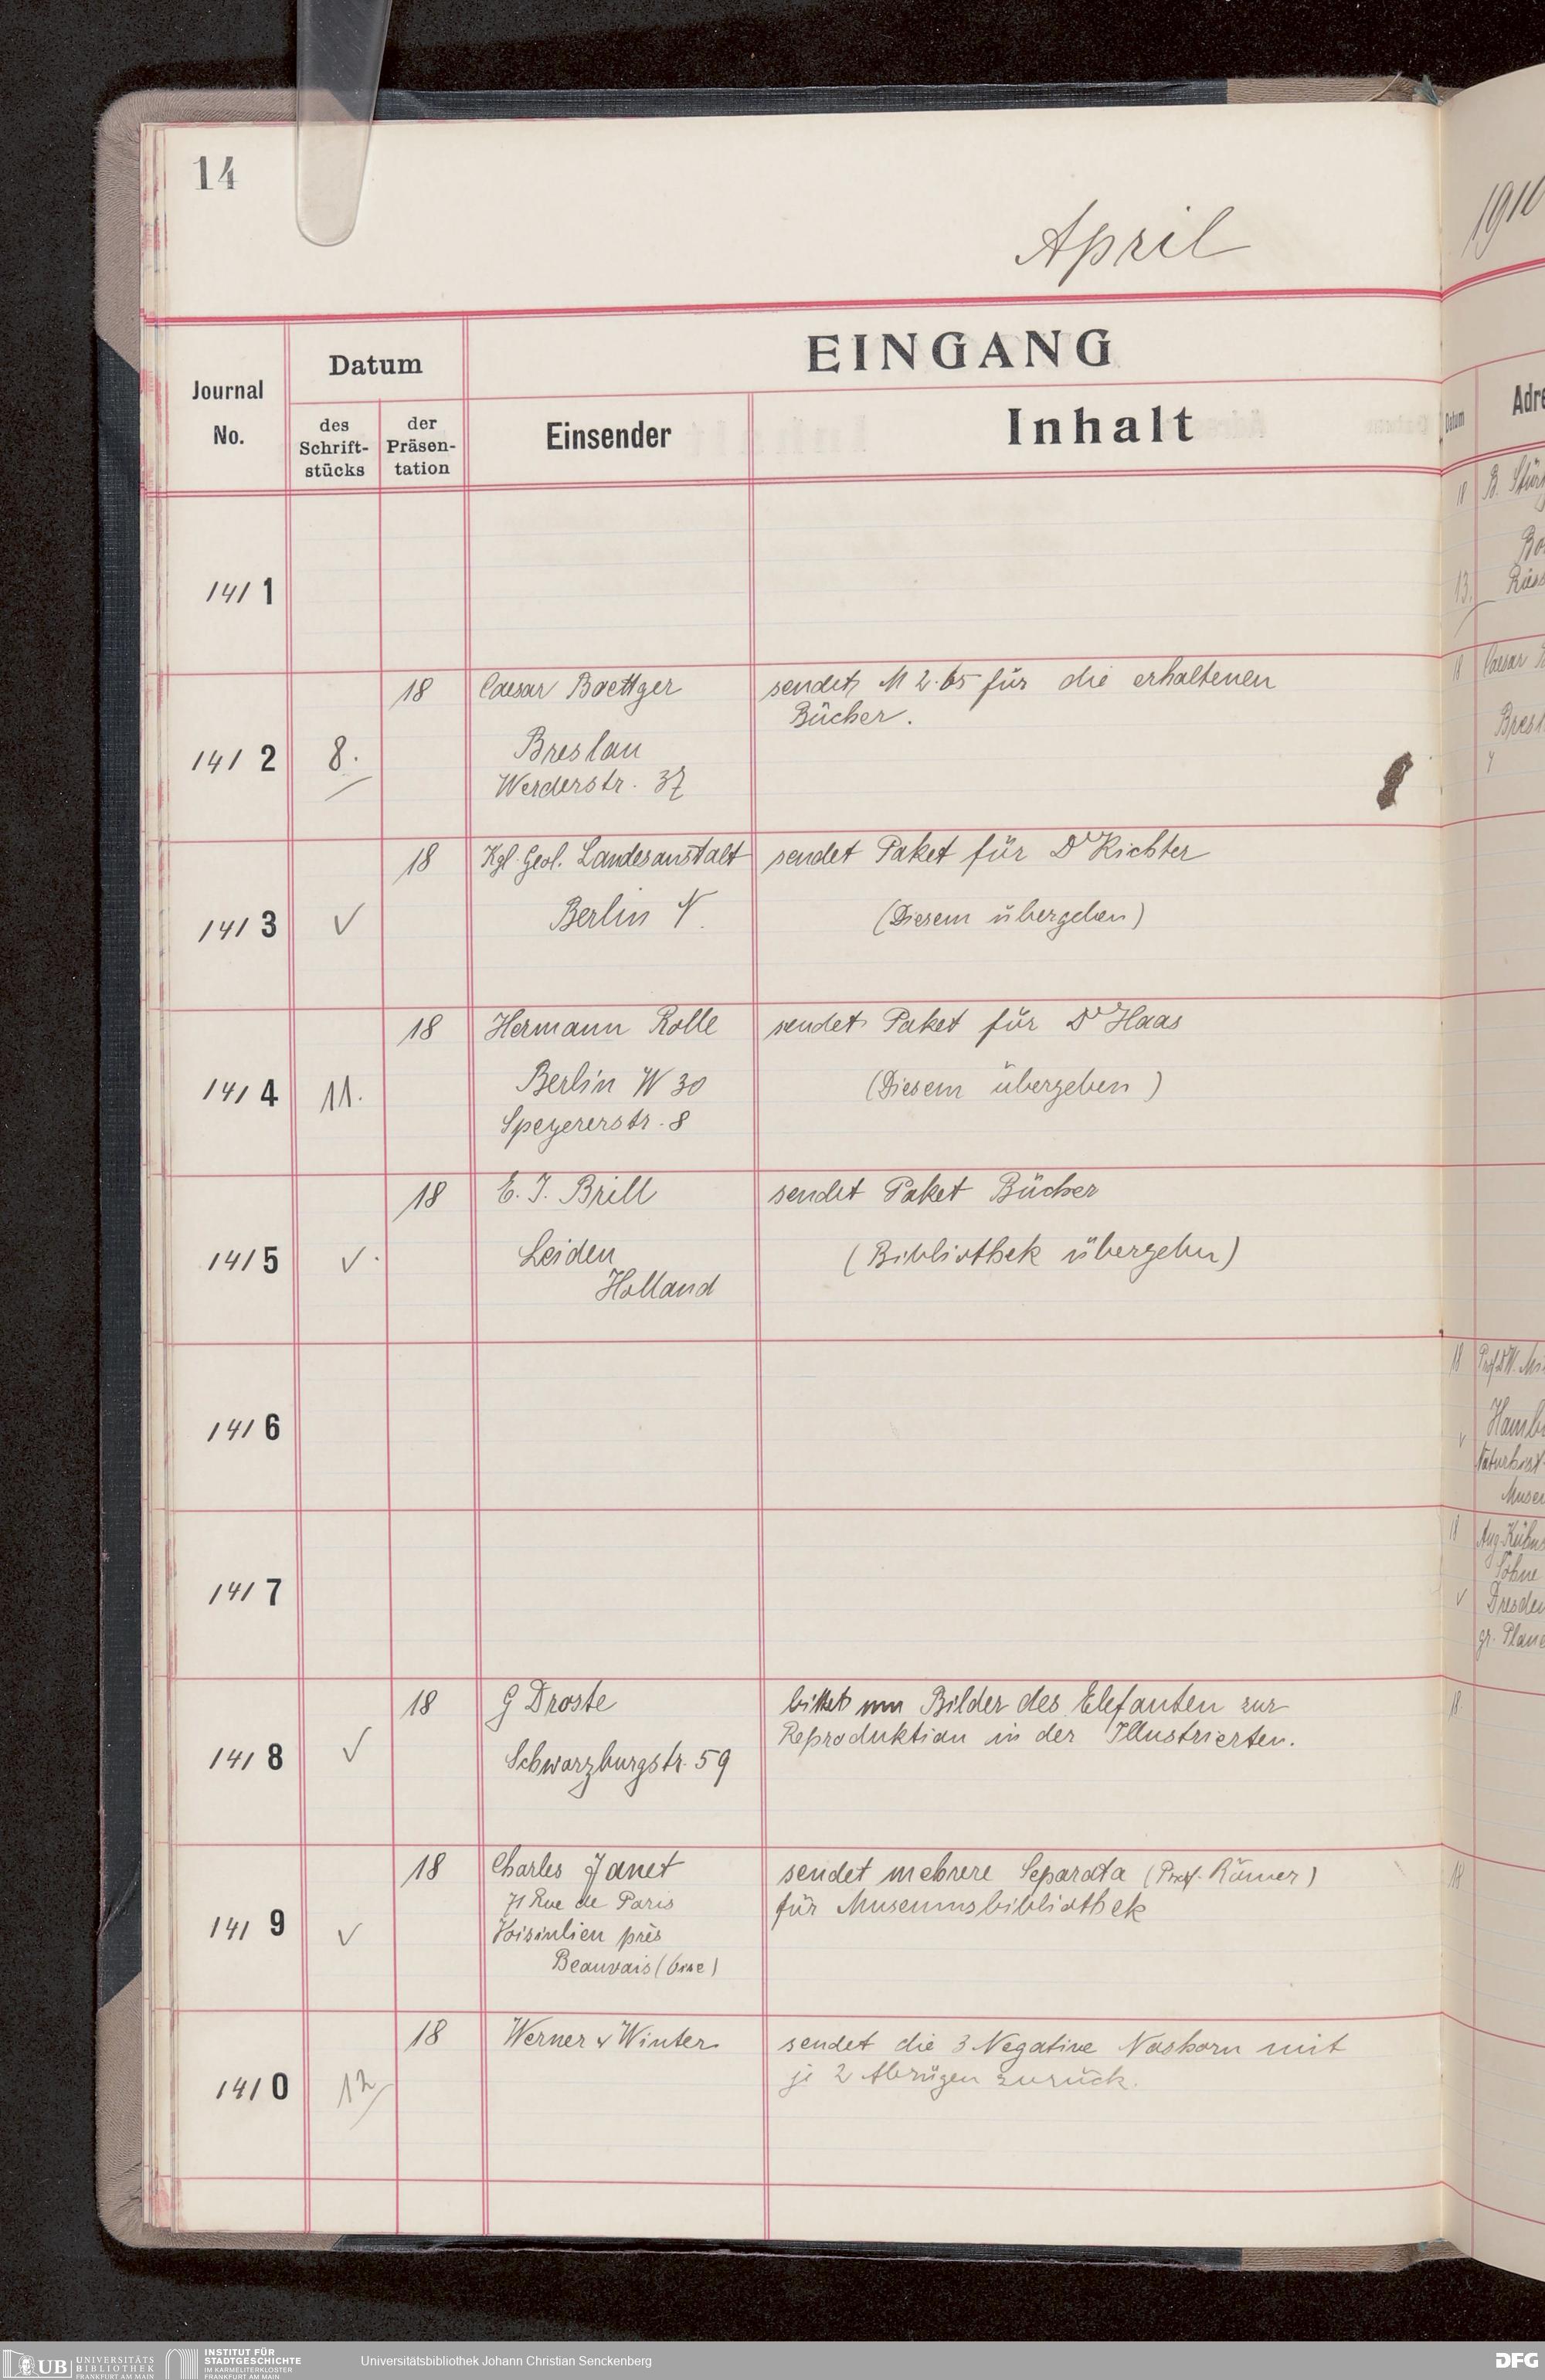 14
April
EINGANG
Journal No.
Datum
des Schrift-stücks
der Präsen-tation
Einsender
Inhalt
Datum
1411
1412
8.
18
Caesar Boettger
Breslau
Werderstr. 37
sendet M 2.65 für die erhaltenen
Bücher.
1413
√
18
Kgl. Geol. Landesanstalt
Berlin N.
sendet Paket für Dr Richter
(Diesem übergeben)
1414
11.
18
Hermann Rolle
Berlin W 30
Speyererstr. 8
sendet Paket für Dr Haas
(Diesem übergeben)
1415
√.
18
E. J. Brill
Leiden
Holland
sendet Paket Bücher
(Bibliothek übergeben)
1416
1417
1418
√
18
G Droste
Schwarzburgstr. 59
bittet um Bilder des Elefanten zur
Reproduktion in der Illustrierten.
1419
√
18
Charles Janet
71 Rue de Paris
Voisinlieu près
Beauvais (Oise)
sendet mehrere Separata (Prof. Römer)
für Museumsbibliothek
1410
12
18
Werner & Winter
sendet die 3 Negative Nashorn mit
je 2 Abzügen zurück.
UB UNIVERSITÄTS
BIBLIOTHEK
FRANKFURT AM MAIN
INSTITUT FÜR
STADTGESCHICHTE
IM KARMELITERKLOSTER
FRANKFURT AM MAIN
Universitätsbibliothek Johann Christian Senckenberg
DFG